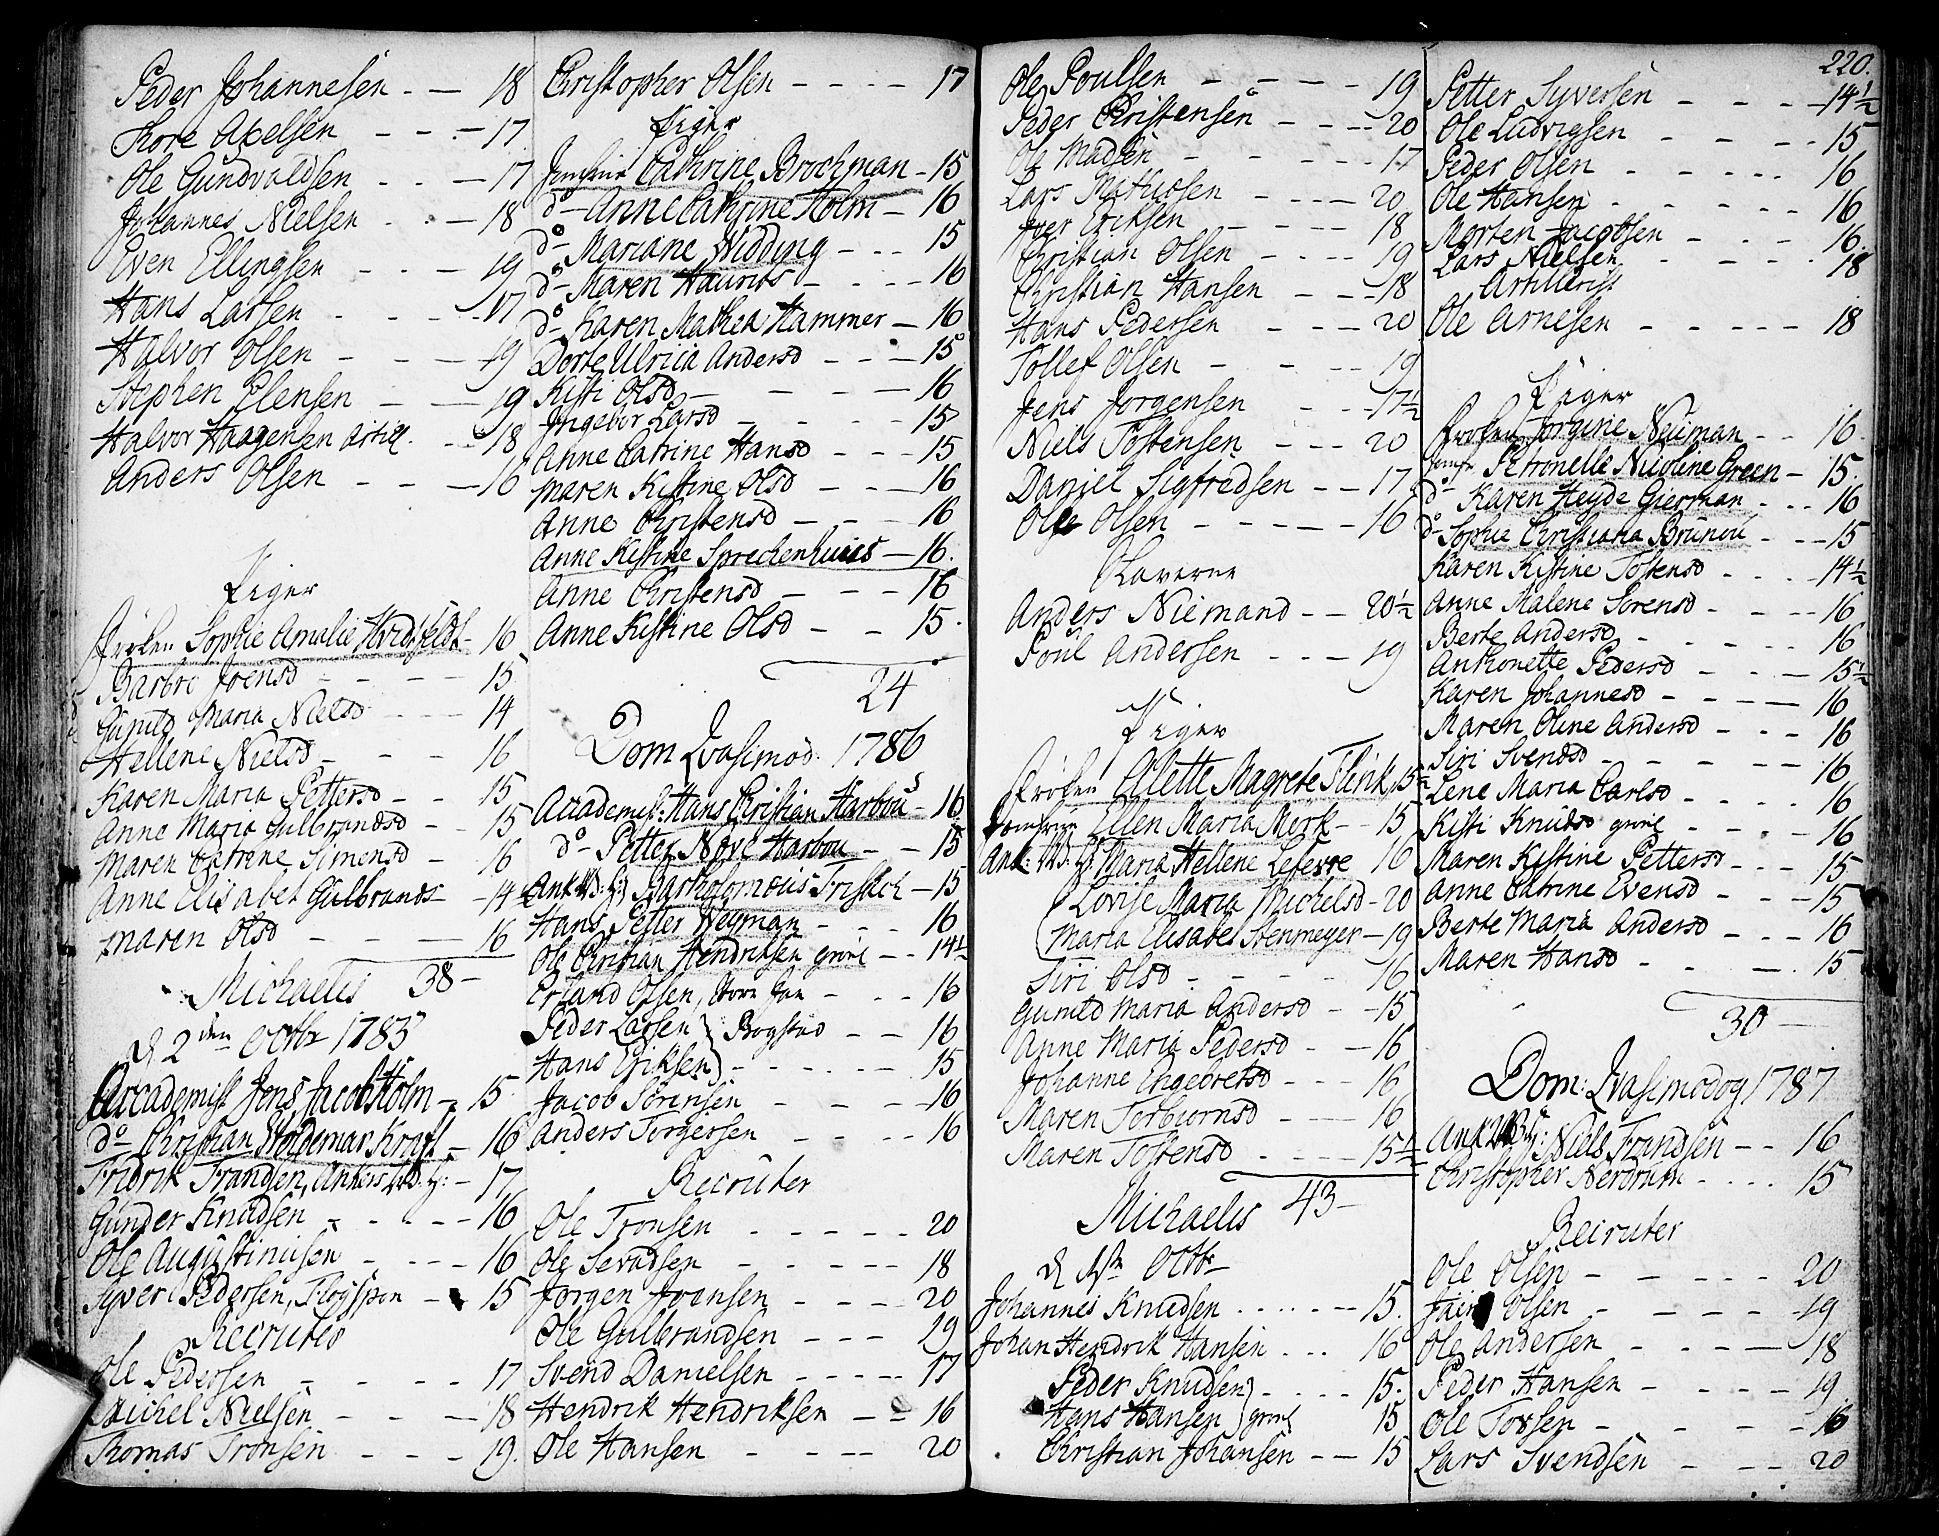 Peder Johannesen - - 18
Tore Axelsen - - - 17
Ole Gundvoldsen - - - 17
Johannes Nielsen - - - 18
Even Ellingsen - - - 19
Hans Larsen - - - 17
Halvor Olsen - - - 19
Stephen Elensen - - 19
Halvor Haagensen Artill. - 18
Anders Olsen - - - 16
Piger
Frøken Sophie Amalie Hvidsfeldt - 16
Barbro Joensd - - - 15
Gunild Maria Nielsd - - - 14
Hellene Nielsd - - - 16
Karen Maria Pettersd - - 15
Anne Maria Gulbrandsd - - 15
Maren Catrene Simensd - 16
Anne Elisabet Gulbrands - 14
Maren Olsd - - - 16
Michaelis 38 -
d 2den Octbr 1785
Accademist Jens Jacob Holm - 15
do Christian Woldemar Kraft - 16
Fridrik Frandsen, Ankers W: H: - 17
Gunder Knudsen - - - 16
Ole Augustinusen - - - 16
Syver Pedersen, Fløyspon - 15
Recruter
Ole Pedersen - - - 17
Michel Nielsen - - - 18
Thomas Tronsen - - - 19.
Christopher Olsen - - - - 17
Piger
Jomfrue Cathrine Brochman - 15
do Anne Cathrine Holm - 16
do Mariane Widding - - - 15
do Maren Haurios - - - - 16
do Karen Mathea Hammer - 16
Dorte Ulrica Andersd - - - 15
Kisti Olsd - - - - 16
Ingebor Larsd - - - - 15
Anne Catrine Hansd - - - 15
Maren Kistine Olsd - - - 16
Anne Christensd - - - 16
Anne Kistine Sprechenhuies - 16.
Anne Christensd - - - 16
Anne Kistine Olsd - - 15.
24
Dom Qvasimod: 1786
Accademist: Hans Christian Harbou - 16
do Petter Nore Harbou - - 15
Ank: W: H: Bartholomeus Frisbach - 15
Hans Petter Neuman - - - 16
Ole Christian Hendriksen - - 14½
Erland Olsen, - - - 16
Peder Larsen } Bogstad - - 16
Hans Eriksen } - - - - 15
Jacob Sörensen - - - 16
Anders Torgersen - - - - 16
Recruter
Ole Tronsen - - - - 20
Ole Sevadsen - - - - 18
Jørgen Joensen - - - - 20
Ole Gulbrandsen - - - 19
Svend Danielsen - - - - 17
Hendrik Hendriksen - - 16
Ole Hansen - - - - 20
Ole Poulsen - - - - 19
Peder Christensen - - - - 20
Ole Madsen - - - - 17
Lars Mathissen - - - - 20
Iver Eriksen - - - - 18
Christian Olsen - - - 19
Christian Hansen - - - 18
Hans Pedersen - - - 20
Tollef Olsen - - - - 19
Jens Jorgensen - - - 17½
Niels Tostensen - - - 20
Daniel Sigfredsen - - 17
Ole Olsen - - - - - 16
Slaverne
Anders Niemand - - 20½
Poul Andersen - - - 19
Piger
Frøken Alette Magrete Flink, 15½
Jomfrue Ellen Maria Mørk - 15
Ank: W: H: Maria Hellene Lefevre 16
Lovise Maria Michelsd - 20
Maria Elisabet Stenmeyer - 19
Siri Olsd - - - - 16
Gunild Maria Andersd - - 15
Anne Maria Pedersd - - 16
Johanne Engebretsd - - - 16
Maren Torbiornsd - - - 16
Maren Tostensd - - - - 15½
Michaelis 43 -
d 1ste Octbr
Johannes Knudsen - - - - 15.
Johan Hendrik Hansen - - - 16
Peder Knudsen } - - - - 15.
Hans Hansen } 15
Christian Johansen - - 15
220.
Petter Syversen - - - - 14½
Ole Ludvigsen - - - - 15
Peder Olsen - - - - 16
Ole Hansen - - - - 16
Morten Jacobsen - - - 16.
Lars Nielsen - - - - 18
Artillerist
Ole Arnesen - - - - - 18
Piger
Frøken Jorgine Neuman - - 16
Jomfr Petronelle Nicoline Green - 15.
do Karen Heyde Gierman - - - 16
do Sophie Christiana Brunou - - - 15
Karen Kistine Tostensd - - - - 14½
Anne Malene Sorensd - - - - 16
Berte Andersd - - - - 16
Anthonette Pedersd - - - - 15½
Karen Johannesd - - - - 16
Maren Oline Andersd - - - 16
Siri Svendsd - - - - - 16
Lene Maria Carlsd - - - - 16
Kisti Knudsd - - - 16
Maren Kistine Pettersd - - - 15
Anne Catrine Evensd - - - 15
Berte Maria Andersd - - - 16
Maren Hansd - - - - 15
30 -
Dom: Qvasimodog 1787
Ank W: H: Niels Frandsen - - 16
Christopher Nerdrum - - - - 15
Recruter
Ole Olsen - - - - - 20
Olsen - - - - 19
Ole Andersen - - - - 18
Peder Hansen - - - - 19
Ole Torsen - - - - 16
Lars Svendsen - - - - 20